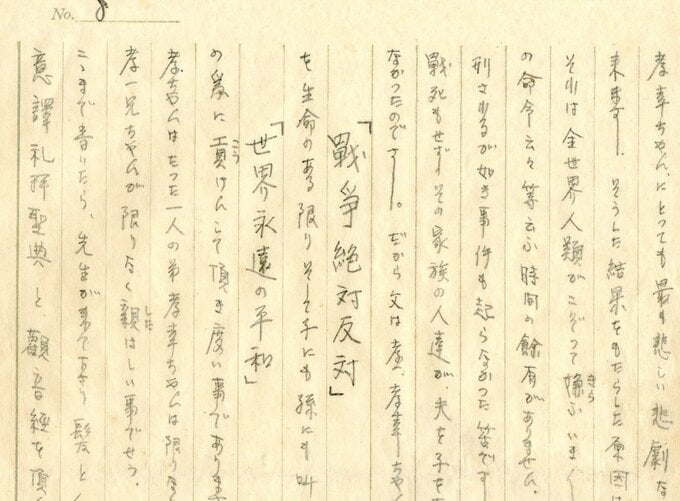 No. 8
孝幸ちゃんにとっても最も悲しい悲劇な
来ます。そうした結果をもたらした原因は
それは全世界人類がこぞって嫌ふいま
きら
の命令云々等云ふ時間の餘有がありません
刑されるが如き事件も起らなかった筈です
戰死もせずその家族の人達が、夫を子を
なかったのです。だから父は孝一、孝幸ちゃ
「戰爭絶対反対」
を生命のある限りそして子にも孫にも叫
「世界永遠の平和」
の爲に貢けんして頂き度い事でありま
こう
孝ちゃんはたった一人の弟孝幸ちゃんは限りな
孝一兄ちゃんが限りなく親はしい事でせう。
した
こゝまで書いたら、先生が来て
髪と
意譯礼拜聖典と觀音經を頂